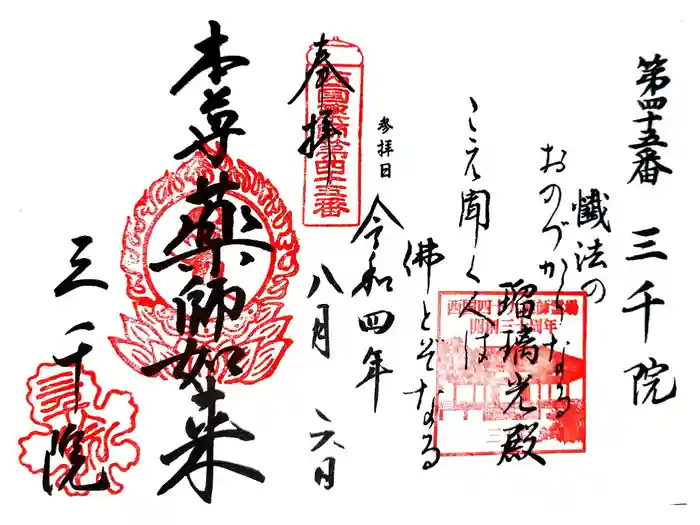 第四十五番 三千院
懺法の
おのづからなる
こえ聞く人は
佛とぞなる
瑠璃光殿
西国四十九薬師霊場
開創三十周年
参拝日
令和四年
八月六日
奉拝
西国薬師第四十五番
本尊 薬師如来
三千院